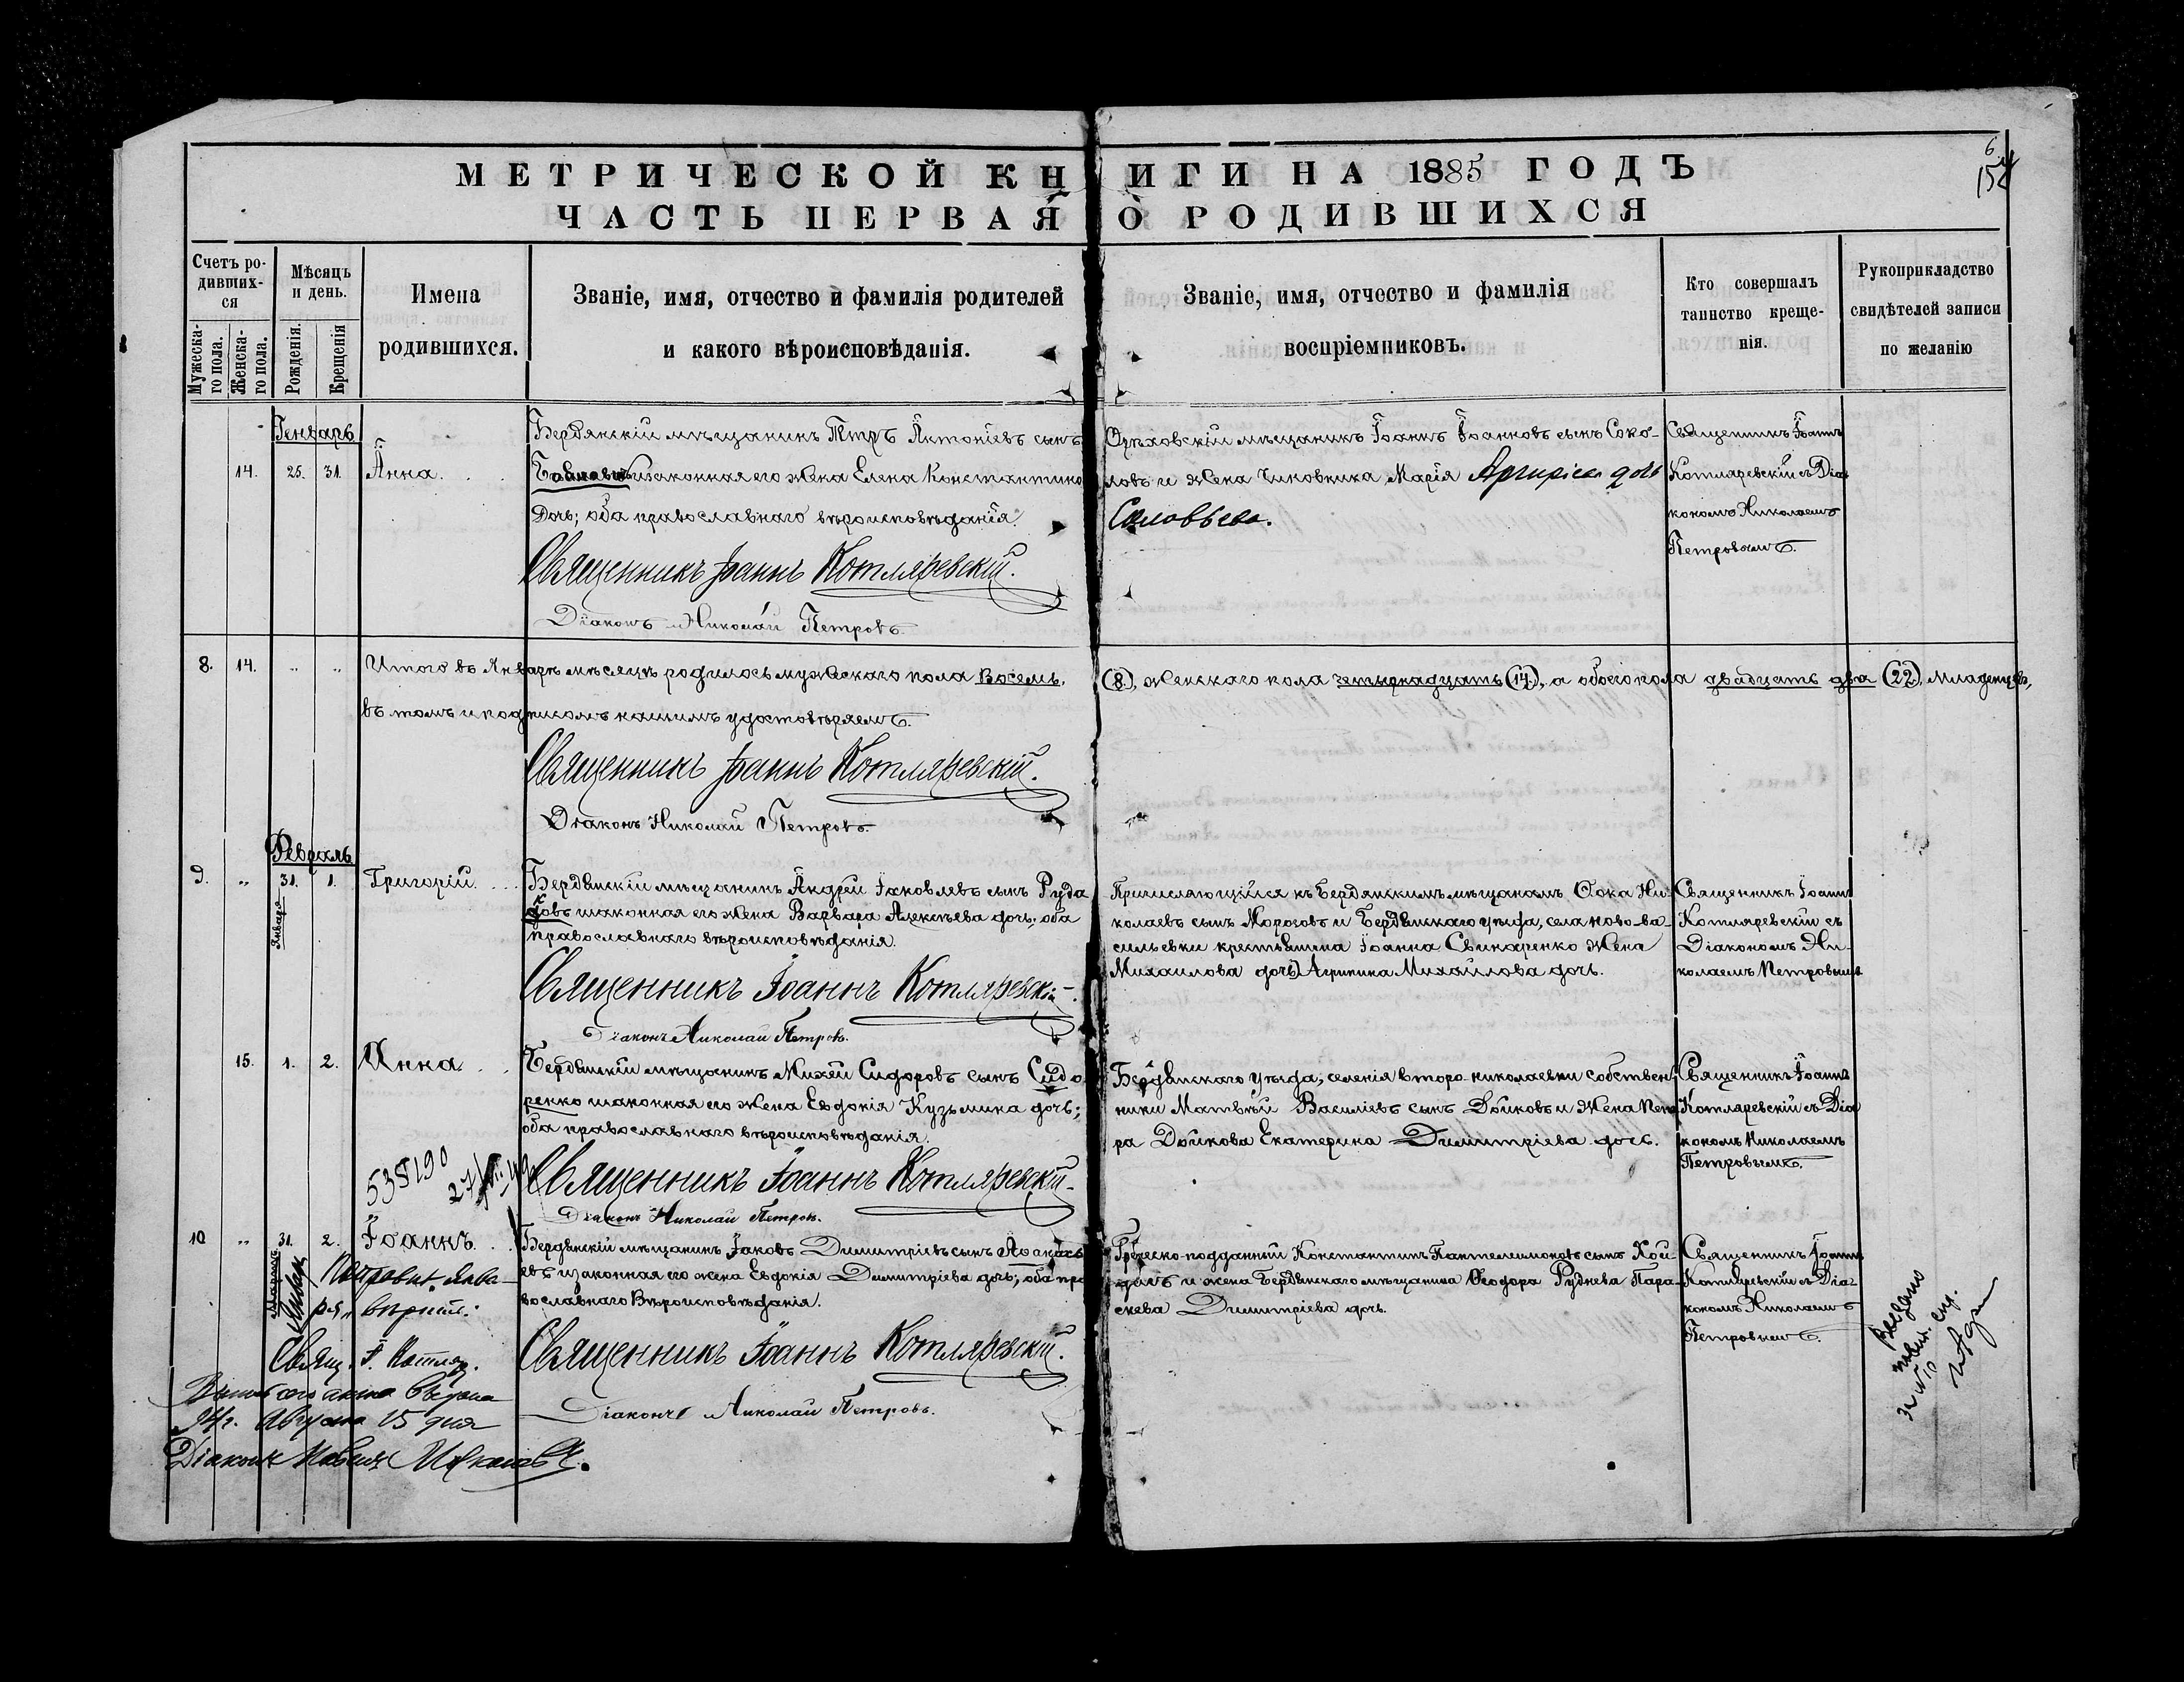 МЕТРИЧЕСКОЙ КНИГИ НА 1885 ГОДЪ
ЧАСТЬ ПЕРВАЯ О РОДИВШИХСЯ
6
Счетъ родившихся
Мужескаго пола.
Женскаго пола.
Мѣсяцъ и день.
Рожденія.
Крещенія
Имена
родившихся.
Званіе, имя, отчество и фамилія родителей
и какого вѣроисповѣданія.
Званіе, имя, отчество и фамилія
воспріемниковъ.
Кто совершалъ
таинство креще-
нія.
Рукоприкладство
свидѣтелей записи
по желанію
Генварь
14. 25. 31. Анна.
Бердянскій мѣщанинъ Петръ Антоніевъ сынъ
законная его жена Елена Константино
дочь; оба православнаго вѣроисповѣданія.
Священникъ Іоаннъ Котляревскій.
Діаконъ Николай Петровъ.
Орѣховскій мѣщанинъ Іоаннъ Іоанновъ сынъ Соко-
ловъ и жена чиновника Марія дочь
Соловьева.
Священникъ Іоаннъ
Котляревскій съ Діа
кономъ Николаемъ
Петровымъ.
8. 14. „ „ Итого въ Январѣ мѣсяцѣ родилось мужескаго пола восемь, (8.), женскаго пола четырнадцать (14.), а обоего пола двадцать два (22.), младенцевъ,
въ томъ и подписомъ нашимъ удостовѣряемъ.
Священникъ Іоаннъ Котляревскій.
Діаконъ Николай Петровъ.
Февраль
9. „ 31. 1. Григорій.
Января
Бердянскій мѣщанинъ Андрей Іаковлевъ сынъ Руда
ковъ и законная его жена Варвара Алексѣева дочь; оба
православнаго вѣроисповѣданія.
Священникъ Іоаннъ Котляревскій.
Діаконъ Николай Петровъ.
Причисляющійся къ Бердянскимъ мѣщанамъ Ѳока Ни-
колаевъ сынъ Морозовъ и Бердянскаго уѣзда, села ново-ва-
сильевки крестьянина Іоанна Свинаренко жена
Михаилова дочь) Агрипина Михаилова дочь.
Священникъ Іоаннъ
Котляревскій съ
Діакономъ Ни-
колаемъ Петровымъ
15. 1. 2. Анна
Бердянскій мѣщанинъ Михей Сидоровъ сынъ Сидо
ренко и законная его жена Евдокія Кузьмина дочь;
оба православнаго вѣроисповѣданія.
Священникъ Іоаннъ Котляревскій.
Діаконъ Николай Петровъ.
Бердянскаго уѣзда, селенія второ-николаевки собствен
ники Матвѣй Василіевъ сынъ Дойковъ и жена Пет
ра Дойкова Екатерина Димитріева дочь.
Священникъ Іоаннъ
Котляревскій съ Діа
кономъ Николаемъ
Петровымъ.
538190
10 „ 31. 2. Іоаннъ.
Январь
Поправка „Янва-
ря„ вѣрна:
Свящ. І. Котляр.
Бердянскій мѣщанинъ Іаковъ Димитріевъ сынъ
евъ и законная его жена Евдокія Димитріева дочь; оба пра
вославнаго Вѣроисповѣданія.
Священникъ Іоаннъ Котляревскій.
Діаконъ Николай Петровъ.
Греческо-подданный Константинъ Пантелеимоновъ сынъ
и жена Бердянскаго мѣщанина Ѳеодора Руднева Пара-
скева Димитріева дочь.
Священникъ Іоаннъ
Котляревскій съ Діа-
кономъ Николаемъ
Петровымъ.
Августа 15 дня
Діаконъ